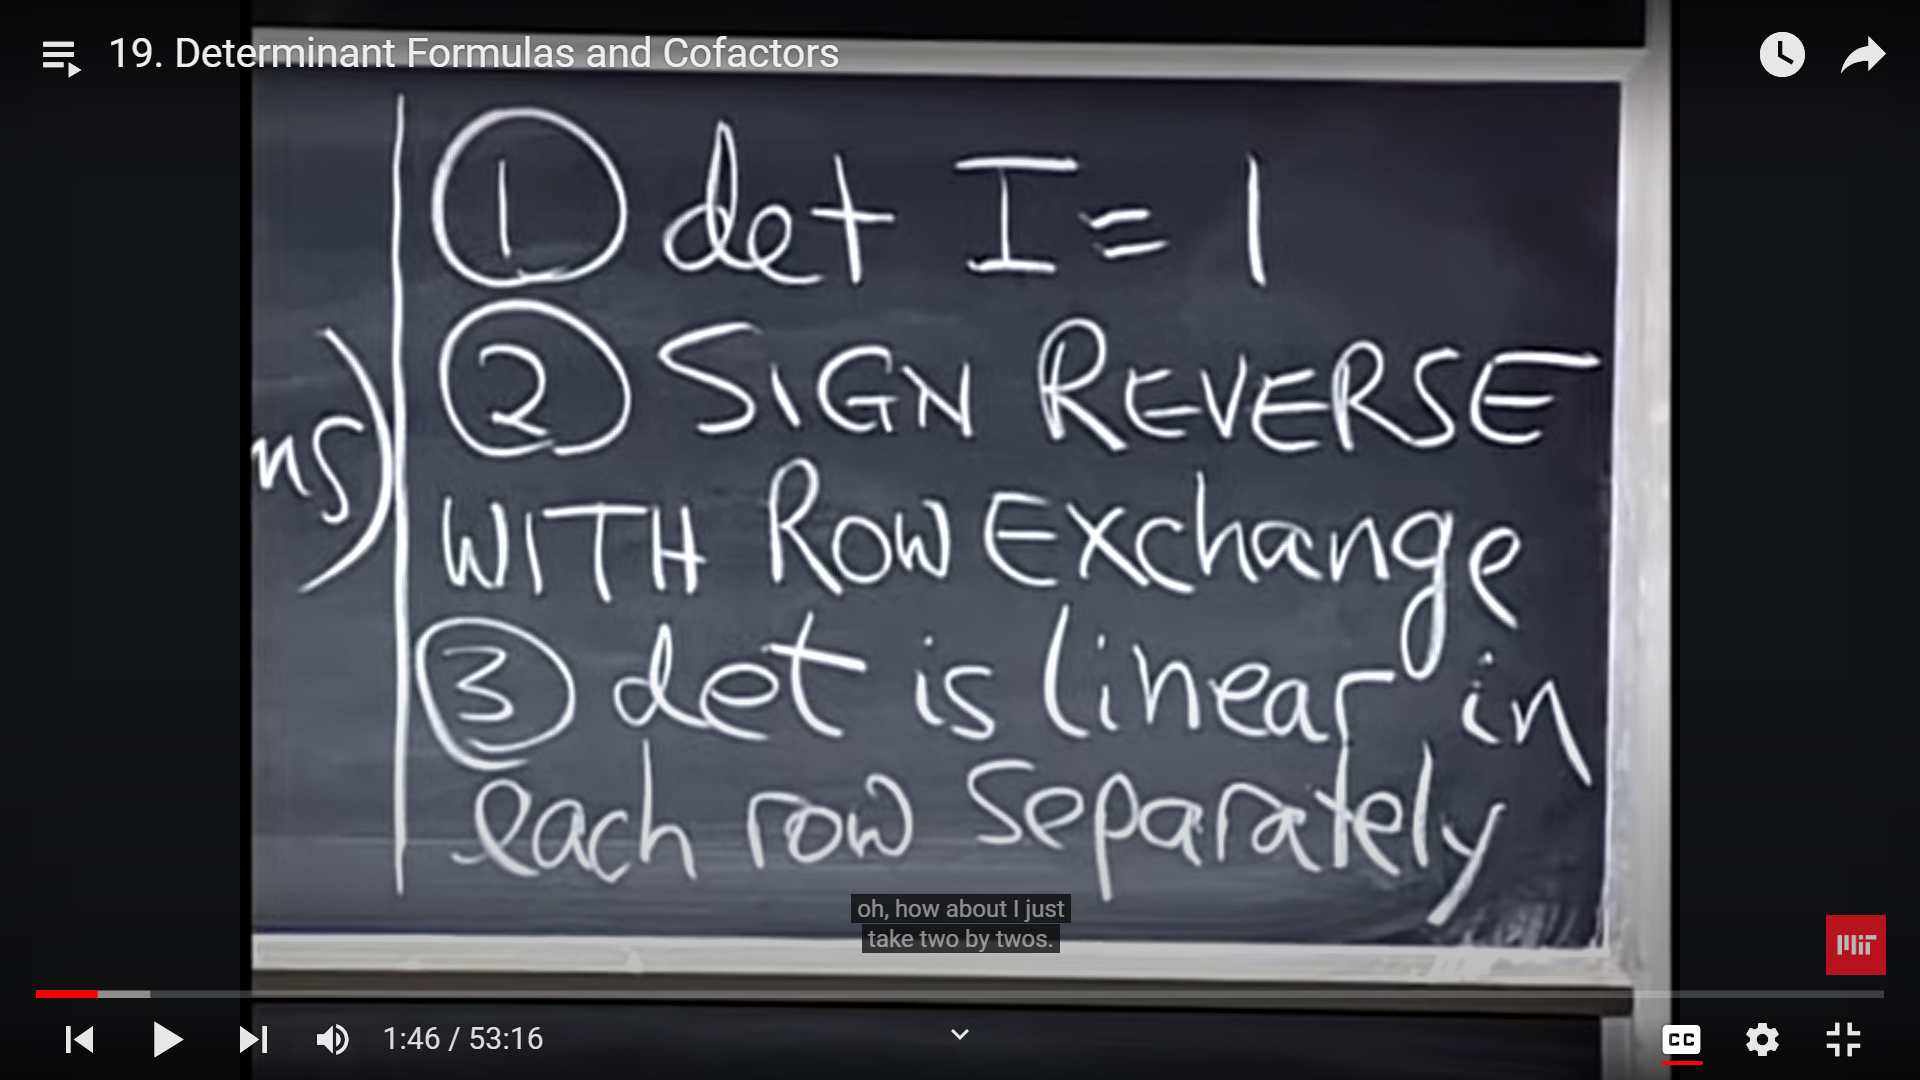 19. Determinant Formulas and Cofactors
① det I = 1
② SIGN REVERSE
WITH ROW EXchange
ns)
③ det is linear in
each row separately
oh, how about I just
take two by twos.
MIT
1:46 / 53:16
CC